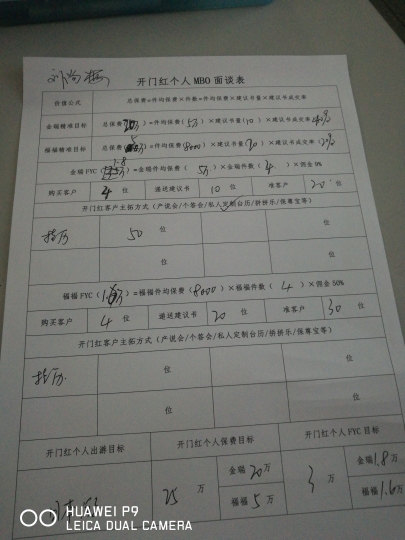 开门红个人MBO面谈表
价值公式 总保费=件均保费×件数=件均保费×建议书量×建议书成交率
金瑞精准目标 总保费( 万)=件均(5万)×建议书量(10)×建议书成交率40%
福福精准目标 总保费( 万)=件均(8000)×建议书量(20)×建议书成交率( )
金瑞FYC(1.8万)=金瑞件均(5万)×金瑞件数(4)×佣金9%
购买客户 4 位 递送建议书 10 位 准客户 20 位
开门红客户主拓方式(产说会/个答会/私人定制台历/拼拼乐/保尊宝等)
50 位
位
福福FYC(1.6万)=福福件均保费(8000)×福福件数(4)×佣金50%
购买客户 4 位 递送建议书 20 位 准客户 30 位
开门红客户主拓方式(产说会/个答会/私人定制台历/拼拼乐/保尊宝等)
位 位
位 位
开门红个人出游目标 开门红个人保费目标 开门红个人FYC目标
25万 金瑞 20万 3万 金瑞 1.8万
福福 5万 福福 1.6万
HUAWEI P9
LEICA DUAL CAMERA